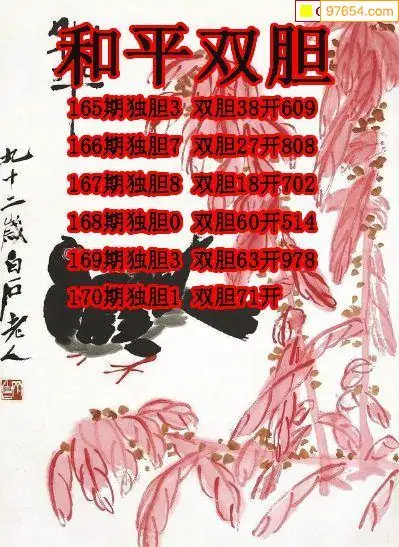 97654.com
和平双胆
165期独胆3 双胆38开609
166期独胆7 双胆27开808
167期独胆8 双胆18开702
168期独胆0 双胆60开514
169期独胆3 双胆63开978
170期独胆1 双胆71开
九十二岁白石老人